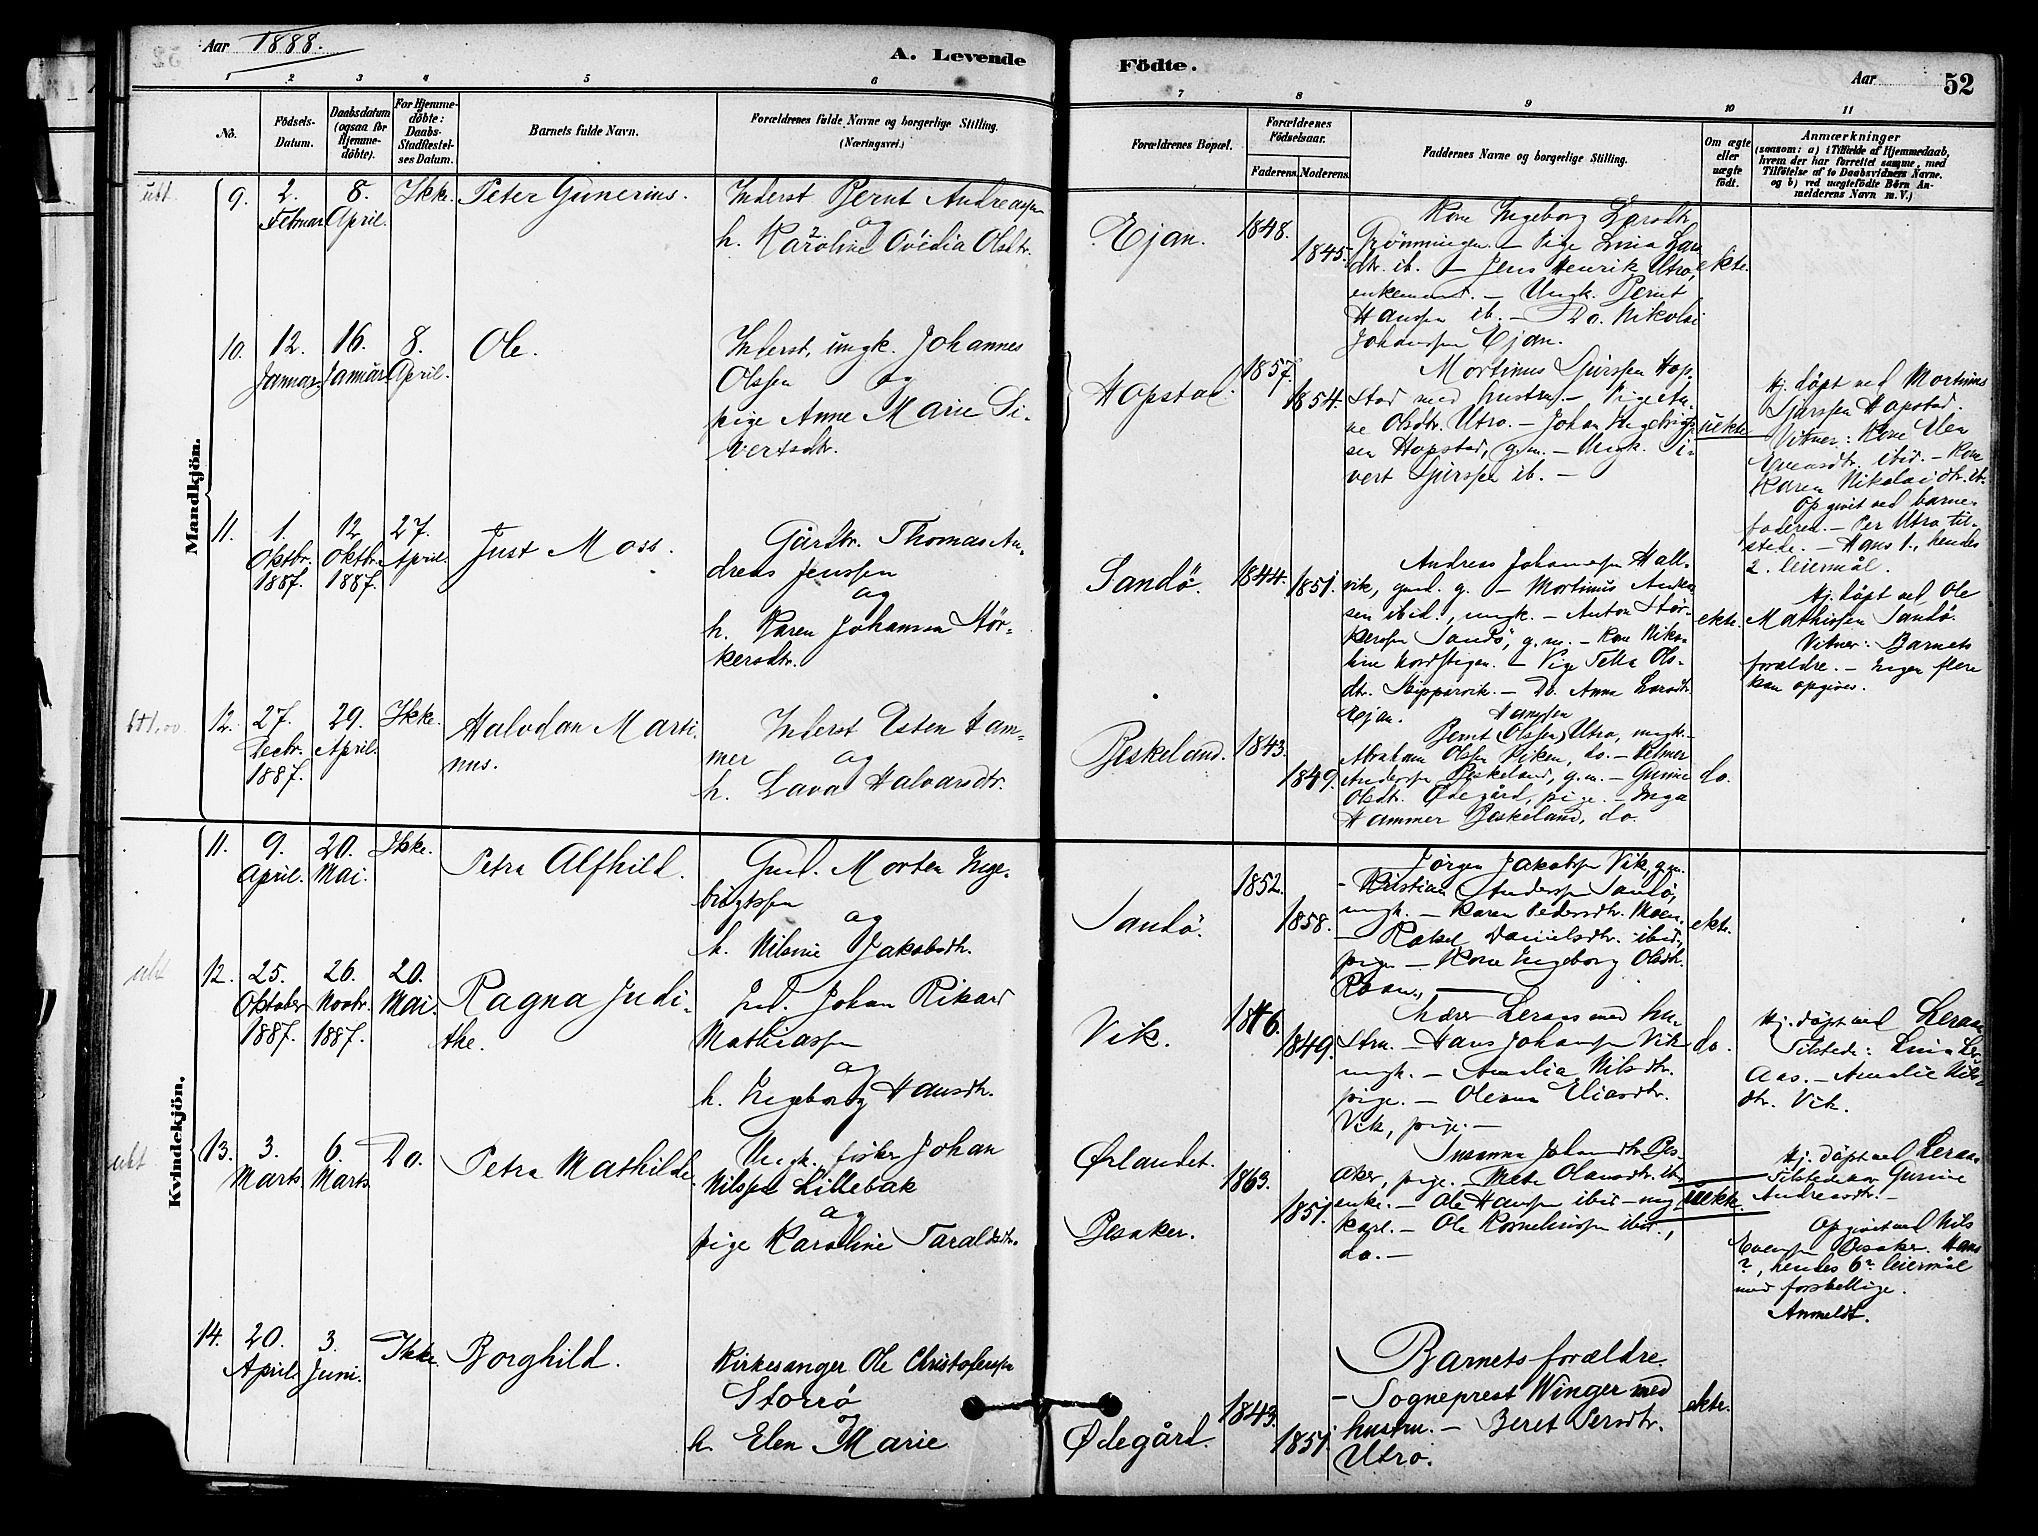 Aar 1888.
A. Levende
Födte.
Aar
52
1
2
3
4
5
6
7
8
9
10
11
No.
Födsels-
Datum.
Daabsdatum
(ogsaa for
Hjemme-
döbte).
For Hjemme-
döbte:
Daabs-
Stadfæstel-
ses Datum.
Barnets fulde Navn.
Forældrenes fulde Navne og borgerlige Stilling.
(Næringsvei.)
Forældrenes Bopæl.
Forældrenes
Födselsaar.
Faderens.
Moderens.
Faddernes Navne og borgerlige Stilling.
Om ægte
eller
uægte
födt.
Anmærkninger
(saasom: a) i Tilfælde af Hjemmedaab,
hvem der har forrettet samme, med
Tilföielse af to Daabsvidners Navne.
og b) ved uægtefödte Börn An-
melderens Navn m. V.)
Mandkjön.
9.
2.
Februar
8.
April.
Ikke.
Peter Gunerius.
Inderst Bernt Andreassen
og
h. Karoline Ovidia Olsdtr.
Ejan.
1848.
1845.
Kone Ingeborg Larsdtr.
Grønningen. – Pige Lina Lars
dtr. ib. – Jens Henrik Utro,
enkemand. – Ungk. Bernt
Hanssen ib. – Do. Nikolai
Johanssen Ejan.
ekte.
10.
12.
Januar.
16.
Januar
8.
April.
Ole.
Inderst, ungk. Johannes
Olssen og
pige Anne Marie Si-
vertsdtr.
Hopstad.
1857.
1854.
Mortinus Sjurssen Hop-
stad med hustru. – Pige An-
ne Olsdtr. Utro. – Johan Ingebrigt-
sen Hopstad, g.m. – Ungk. Si-
vert Sjurssen ib. –
uekte
Hj. døpt ved Mortinus
Sjurssen Hopstad.
Vitner: Kone
Evensdtr. ibid. – Kone
Karen Nikolaidtr. ib.
Opgivet ved barne-
faderen. – Per Utro til-
stede. – Hans 1., hendes
2. leiermål.
11.
1.
Oktbr.
1887.
12
Oktbr.
1887.
27.
April.
Just Moss.
Gårdbr. Thomas An-
dreas Jenssen
og
h. Karen Johanna Stør-
kersdtr.
Sandø.
1844.
1851.
Andreas Johanssen Hall-
vik, gmd. g. – Mortinus Andrea
sen ibid., ungk. – Anton Stør-
kerssen Sandø, g.m. – Kone Niko-
line Nordstigen. – Pige Tella Ols-
dtr. Skippervik. – Do. Anna Larsdtr.
Ejan.
ekte.
Hj. døpt ved Ole
Mathissen Sandø.
Vitner: Barnets
forældre. – Ingen flere
kan opgives.
12.
27.
Decbr.
1887.
29.
April.
Ikke.
Halvdan Marti-
nus.
Inderst Esten Ham-
mer og
h. Lava Halvarsdtr.
Beskeland.
1843.
1849.
Hanssen
Bernt (Olssen) Utro, ungk. –
Abraham Olssen Viken, do. – Petmer
Anderssen Beskeland, g.m. – Gunine
Olsdtr. Ødegård, pige. – Inga
Hammer Beskeland, do.
do.
Kvindekjön.
11.
9.
April.
20.
Mai.
Ikke.
Petra Alfhild.
Gmd. Morten Inge-
brigtssen
og
h. Nilsine Jakobsdtr.
Sandø.
1852.
1858.
Jørgen Jakobssen Vik, g.m.
– Kristian Anderssen Sandø,
ungk. – Karen Pedersdtr. Moen.
– Rakel Danielsdtr. ibid.,
pige – Kone Ingeborg Olsdtr.
Roan.
ekte.
12.
25.
Oktober
1887.
26.
Novbr.
1887.
20.
Mai.
Ragna Judi-
the.
Johan Rikard
Mathiassen
og
h. Ingeborg Hansdtr.
Vik.
1846.
1849.
Lærer Leraas med hu-
stru. – Hans Johanssen Vik
ungk. – Amalia Nilsdtr.
pige. – Oleana Eliasdtr.
Vik, pige. –
do.
Hj. døpt ved Leraas
Tilstede: Lina Ler-
aas. – Amalie Nils-
dtr. Vik.
13.
3.
Marts.
6.
Marts.
Do.
Petra Mathilde.
Ungk. fisker Johan
Nilssen Lillebak
og
pige Karoline Taraldsdtr.
Ørlandet.
Besaker.
1863.
1851.
Susanna Johansdtr. Bes-
aker, pige. – Mete Olausdtr. ib.
enke. – Ole Hanssen ibid – ung
karl. – Ole Korneliussen ibid.,
do. –
uekte.
Hj. døpt ved Leraas
Tilstede Gurine
Andreasdtr. –
Opgivet ved Nils
Evenssen Besaker. Hans
?, hendes 6te leiermål
med forskellige.
Anmeldt.
14.
20.
April.
3.
Juni.
Ikke.
Borghild.
Kirkesanger Ole Christofersen
Storrø
h. Elen Marie
Ødegård.
1843.
1851.
Barnets forældre.
– Sogneprest Winger med
hustru. – Beret Persdtr.
Utro.
ekte.